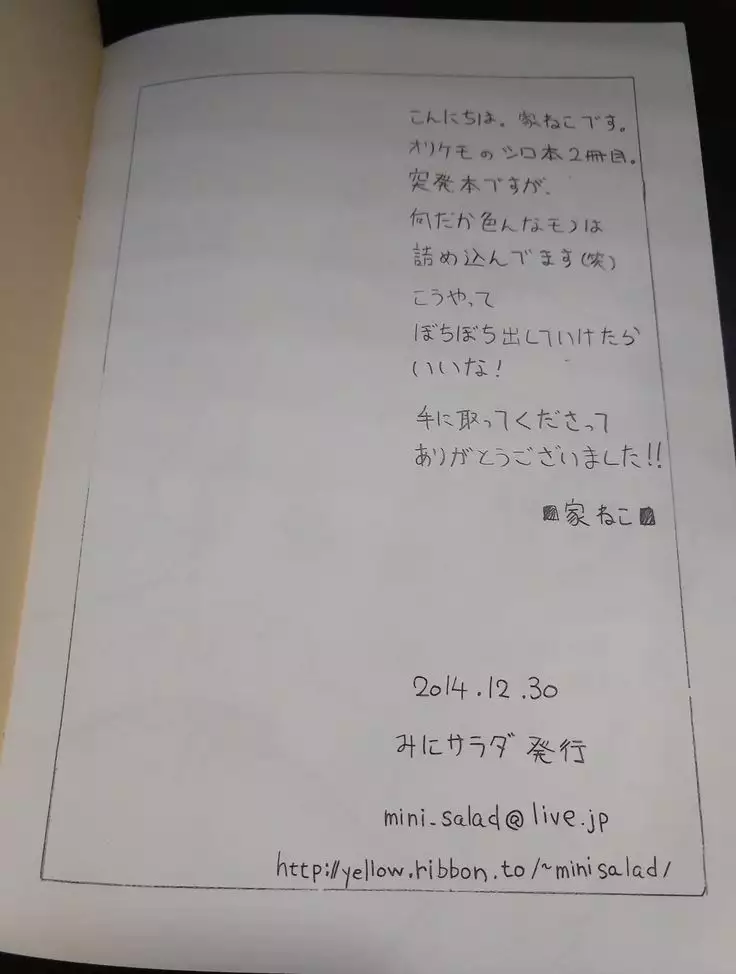 こんにちは。家ねこです。
オリケモのシロ本2冊目。
突発本ですが、
何だか色んなモノは
詰め込んでます(笑)
こうやって
ぼちぼち出していけたら
いいな!
手に取ってくださって
ありがとうございました!!
■家ねこ■
2014.12.30
みにサラダ 発行
mini_salad@live.jp
http://yellow.ribbon.to/~minisalad/